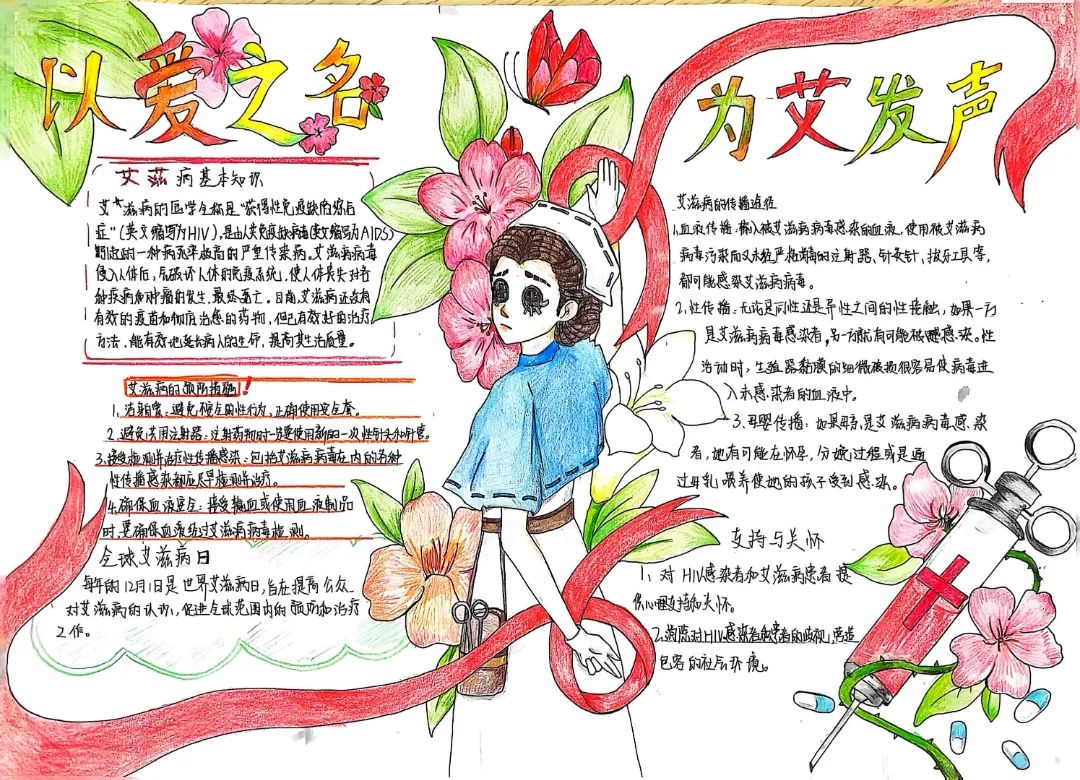 以爱之名
为艾发声
艾滋病基本知识
艾滋病的医学全称是“获得性免疫缺陷综合
症”(英文缩写为HIV),是由人类免疫缺陷病毒(英文缩写为AIDS)
引起的一种病死率极高的严重传染病。艾滋病病毒
侵入人体后,能破坏人体的免疫系统,使人体丧失对各
种疾病和肿瘤的发生,最终死亡。目前,艾滋病还没有
有效的疫苗和彻底治愈的药物,但已有效好的治疗
方法,能有效地延长病人的生命,提高其生活质量。
艾滋病的预防措施!
1、洁身自爱:避免不安全的性行为,正确使用安全套。
2、避免共用注射器:注射药物时一定要使用新的一次性针头和针管。
3、接受检测并治疗性传播感染:包括艾滋病病毒在内的各种
性传播感染都应尽早检测并治疗。
4、确保血液安全:接受输血或使用血液制品
时,要确保血液经过艾滋病病毒检测。
全球艾滋病日
每年的12月1日是世界艾滋病日,旨在提高公众
对艾滋病的认识,促进全球范围内的预防和治疗
工作。
艾滋病的传播途径
1、血液传播:输入被艾滋病病毒感染的血液,使用被艾滋病
病毒污染而又未经严格消毒的注射器、针灸针、拔牙工具等,
都可能感染艾滋病病毒。
2、性传播:无论是同性还是异性之间的性接触,如果一方
是艾滋病病毒感染者,另一方就有可能被感染。性
活动时,生殖器黏膜的细微破损很容易使病毒进
入未感染者的血液中。
3、母婴传播:如果母亲是艾滋病病毒感染
者,她有可能在怀孕、分娩过程或是通
过母乳喂养使她的孩子受到感染。
支持与关怀
1、对HIV感染者和艾滋病患者提
供心理支持和关怀。
2、消除对HIV感染者和患者的歧视,营造
包容的社会环境。